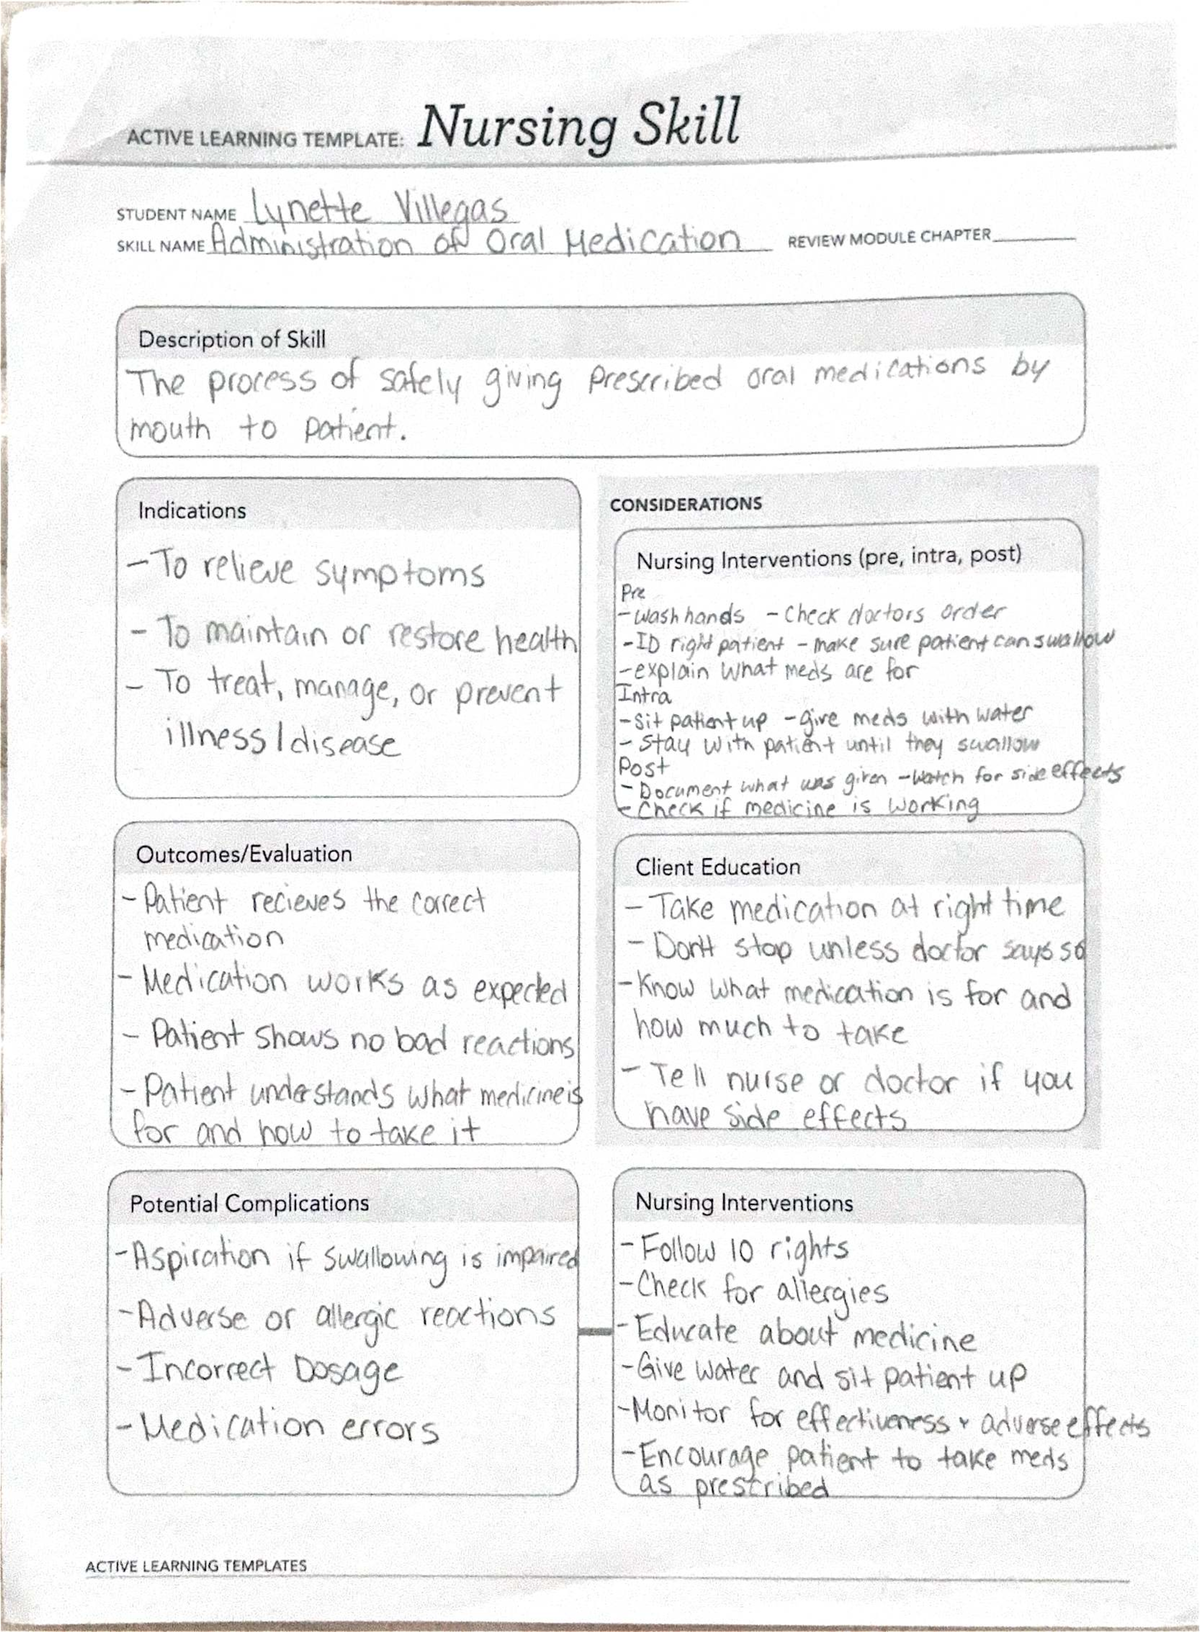 ACTIVE LEARNING TEMPLATE: Nursing Skill
STUDENT NAME Lynette Villegas
SKILL NAME Administration of Oral Medication REVIEW MODULE CHAPTER
Description of Skill
The process of safely giving prescribed oral medications by
mouth to patient.
Indications
- To relieve symptoms
- To maintain or restore health
- To treat, manage, or prevent
illness/disease
CONSIDERATIONS
Nursing Interventions (pre, intra, post)
Pre
- wash hands - Check doctors order
- ID right patient - make sure patient can swallow
- explain what meds are for
Intra
- Sit patient up - give meds with water
- Stay with patient until they swallow
Post
- Document what was given - Watch for side effects
- Check if medicine is working
Outcomes/Evaluation
- Patient recieves the correct
medication
- Medication works as expected
- Patient shows no bad reactions
- Patient understands what medicine is
for and how to take it
Client Education
- Take medication at right time
- Don't stop unless doctor says so
- Know what medication is for and
how much to take
- Tell nurse or doctor if you
have side effects
Potential Complications
- Aspiration if swallowing is impaired
- Adverse or allergic reactions
- Incorrect Dosage
- Medication errors
Nursing Interventions
- Follow 10 rights
- Check for allergies
- Educate about medicine
- Give water and sit patient up
- Monitor for effectiveness + adverse effects
- Encourage patient to take meds
as prescribed
ACTIVE LEARNING TEMPLATES